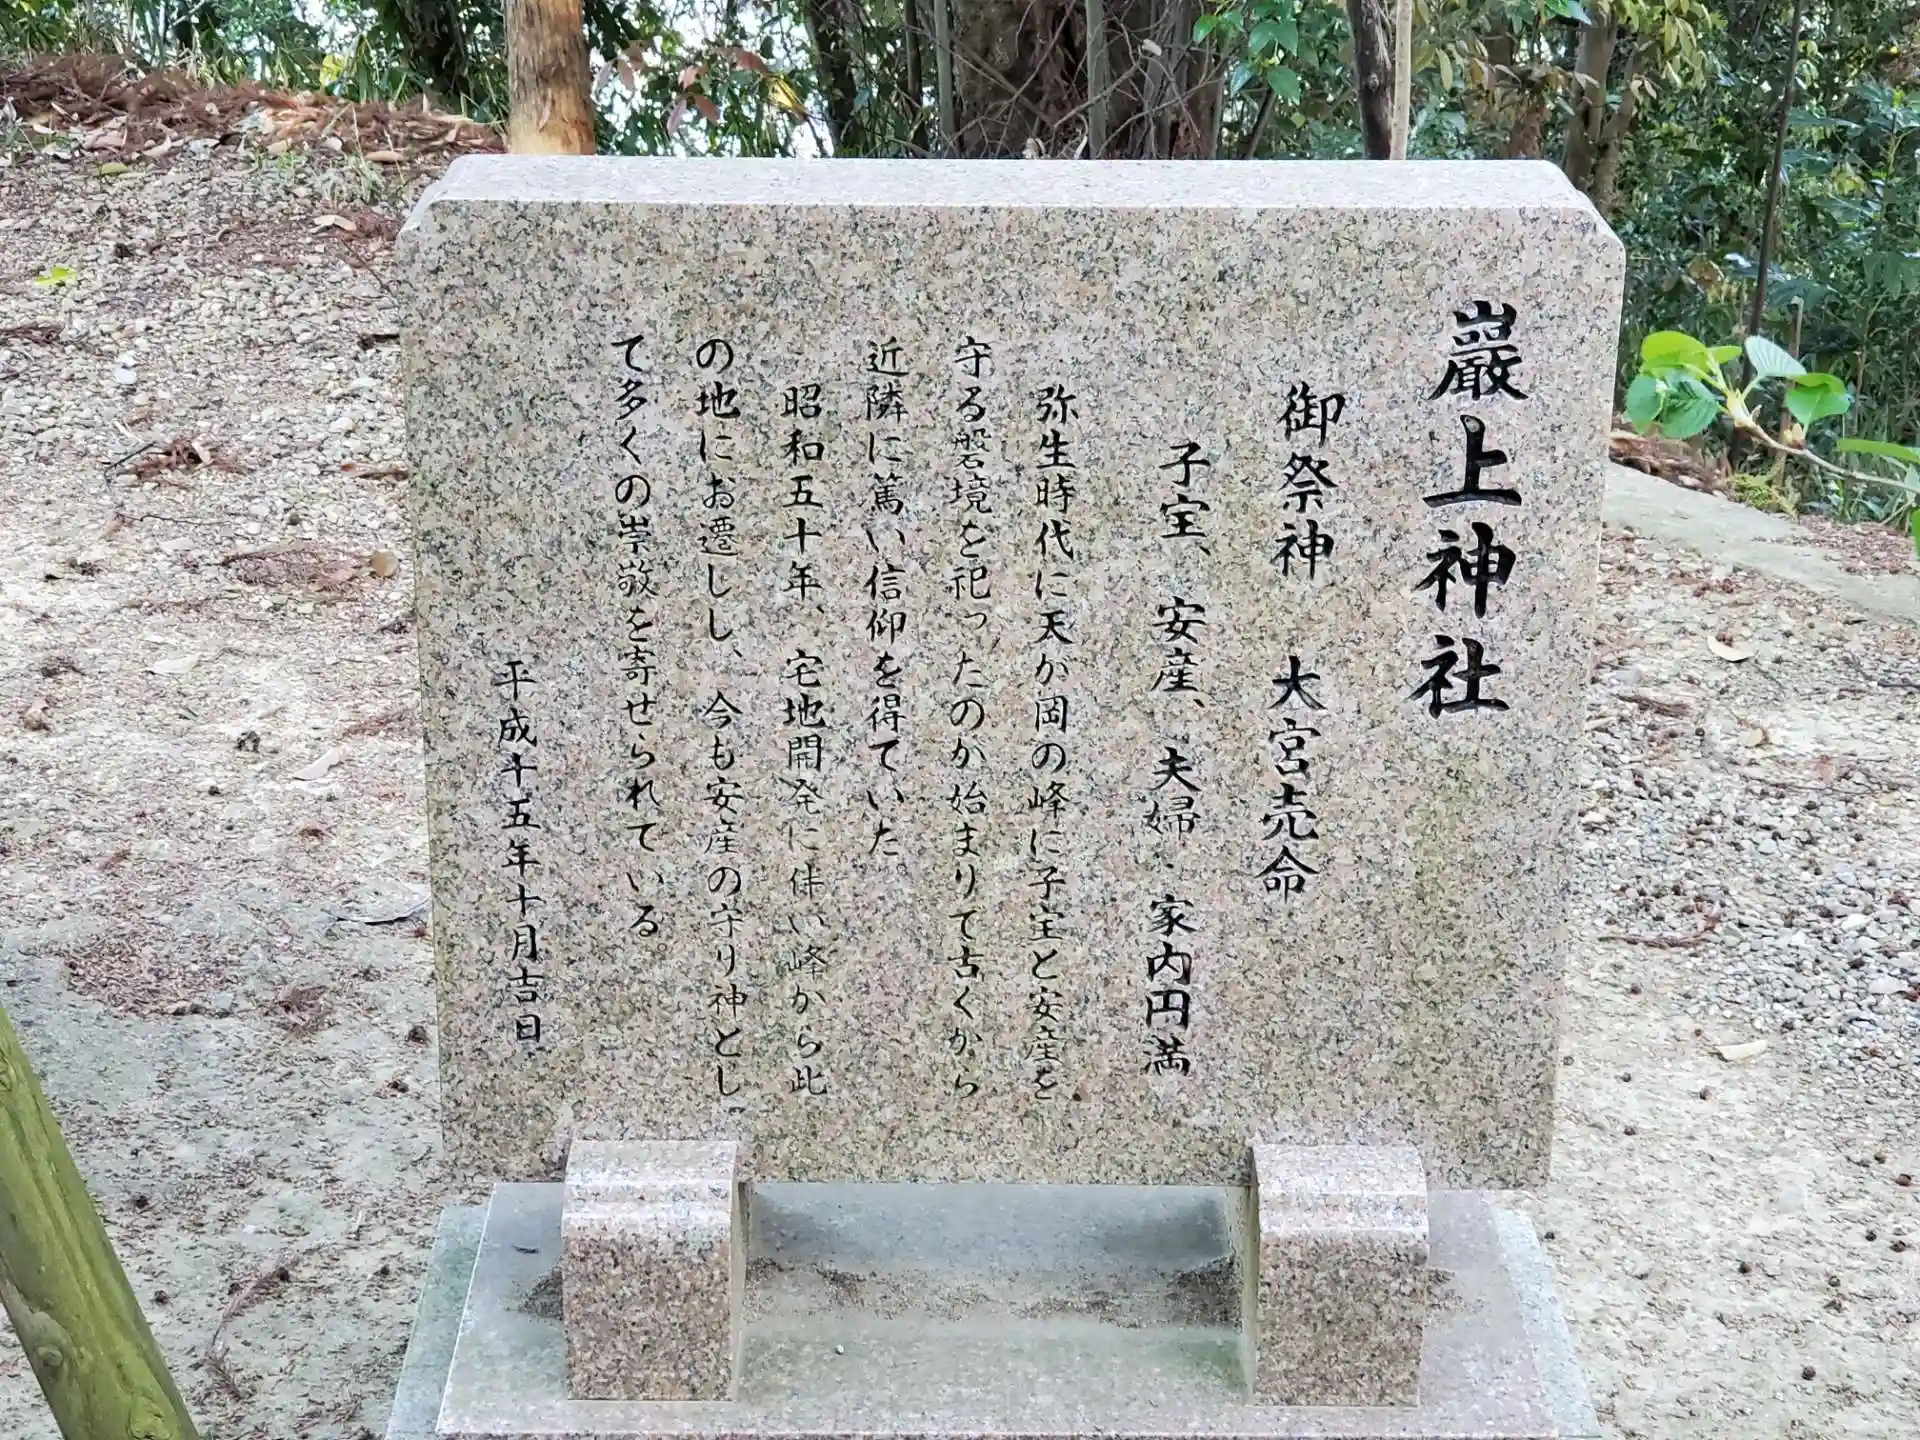 巖上神社
御祭神　大宮売命
子宝、安産、夫婦・家内円満
弥生時代に天が岡の峰に子宝と安産を
守る磐境を祀ったのが始まりで古くから
近隣に篤い信仰を得ていた。
昭和五十年、宅地開発に伴い峰から此
の地にお遷しし、今も安産の守り神とし
て多くの崇敬を寄せられている。
平成十五年十月吉日